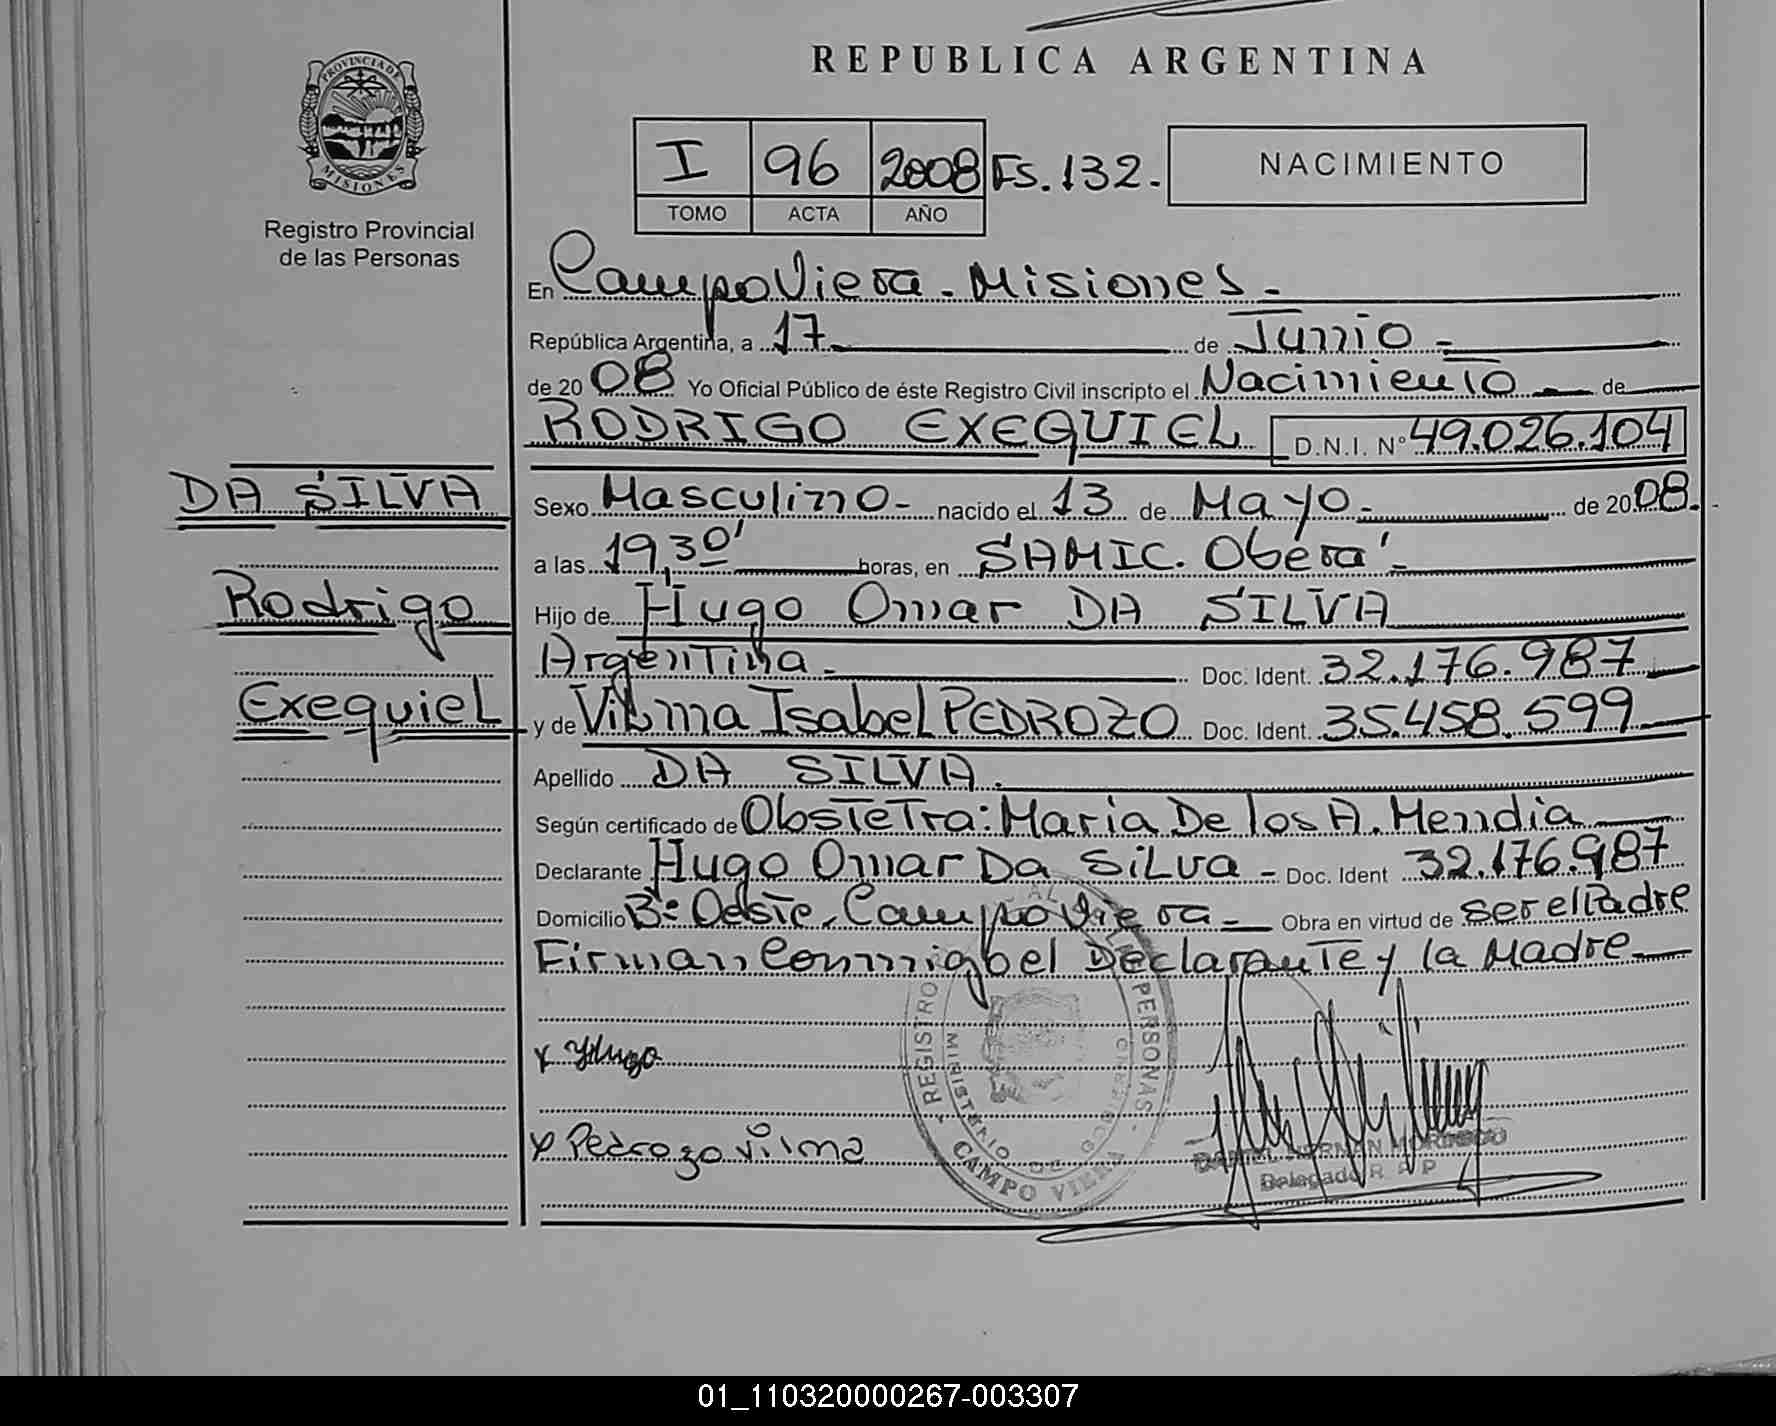 REPUBLICA ARGENTINA
PROVINCIA DE MISIONES
Registro Provincial
de las Personas
I 96 2008 Fs. 132.-
TOMO ACTA AÑO
NACIMIENTO
En Campo Viera - Misiones -
República Argentina, a 17 de Junio -
de 20 08 Yo Oficial Público de éste Registro Civil inscripto el Nacimiento de
RODRIGO EXEQUIEL D.N.I. N° 49.026.104
DA SILVA
Rodrigo
Exequiel
Sexo Masculino - nacido el 13 de Mayo - de 20 08.-
a las 19,30' horas, en SAMIC. Oberá -
Hijo de Hugo Omar DA SILVA
Argentina - Doc. Ident. 32.176.987
y de Vilma Isabel PEDROZO Doc. Ident. 35.458.599
Apellido DA SILVA.
Según certificado de Obstetra: Maria De los A. Mendia
Declarante Hugo Omar Da Silva - Doc. Ident 32.176.987
Domicilio B° Oeste, Campo Viera - Obra en virtud de ser el Padre
Firman Conmigo el Declarante y la Madre
x Hugo
x Pedrozo Vilma
REGISTRO PERSONAS -
MINISTERIO DE
CAMPO VIERA
Delegado R. P
01_110320000267-003307